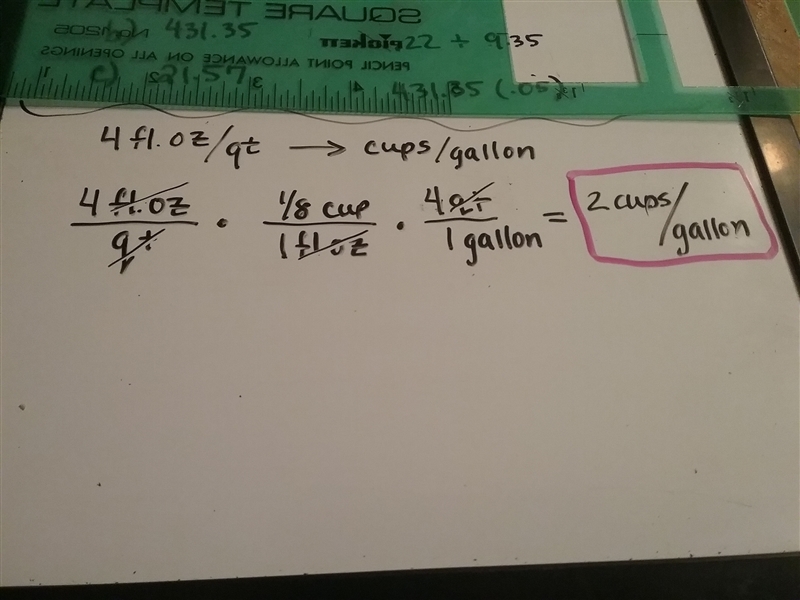 SQUARE TEMPLATE
431.35
Pickett
22 ÷ 9.35
PENCIL POINT ALLOWANCE ON ALL OPENINGS
c) 21.57
431.35 (.05)
1 2 3 4
4 fl.oz/qt → cups/gallon
4 fl.oz/qt · 1/8 cup/1 fl oz · 4 qt/1 gallon = 2 cups/gallon